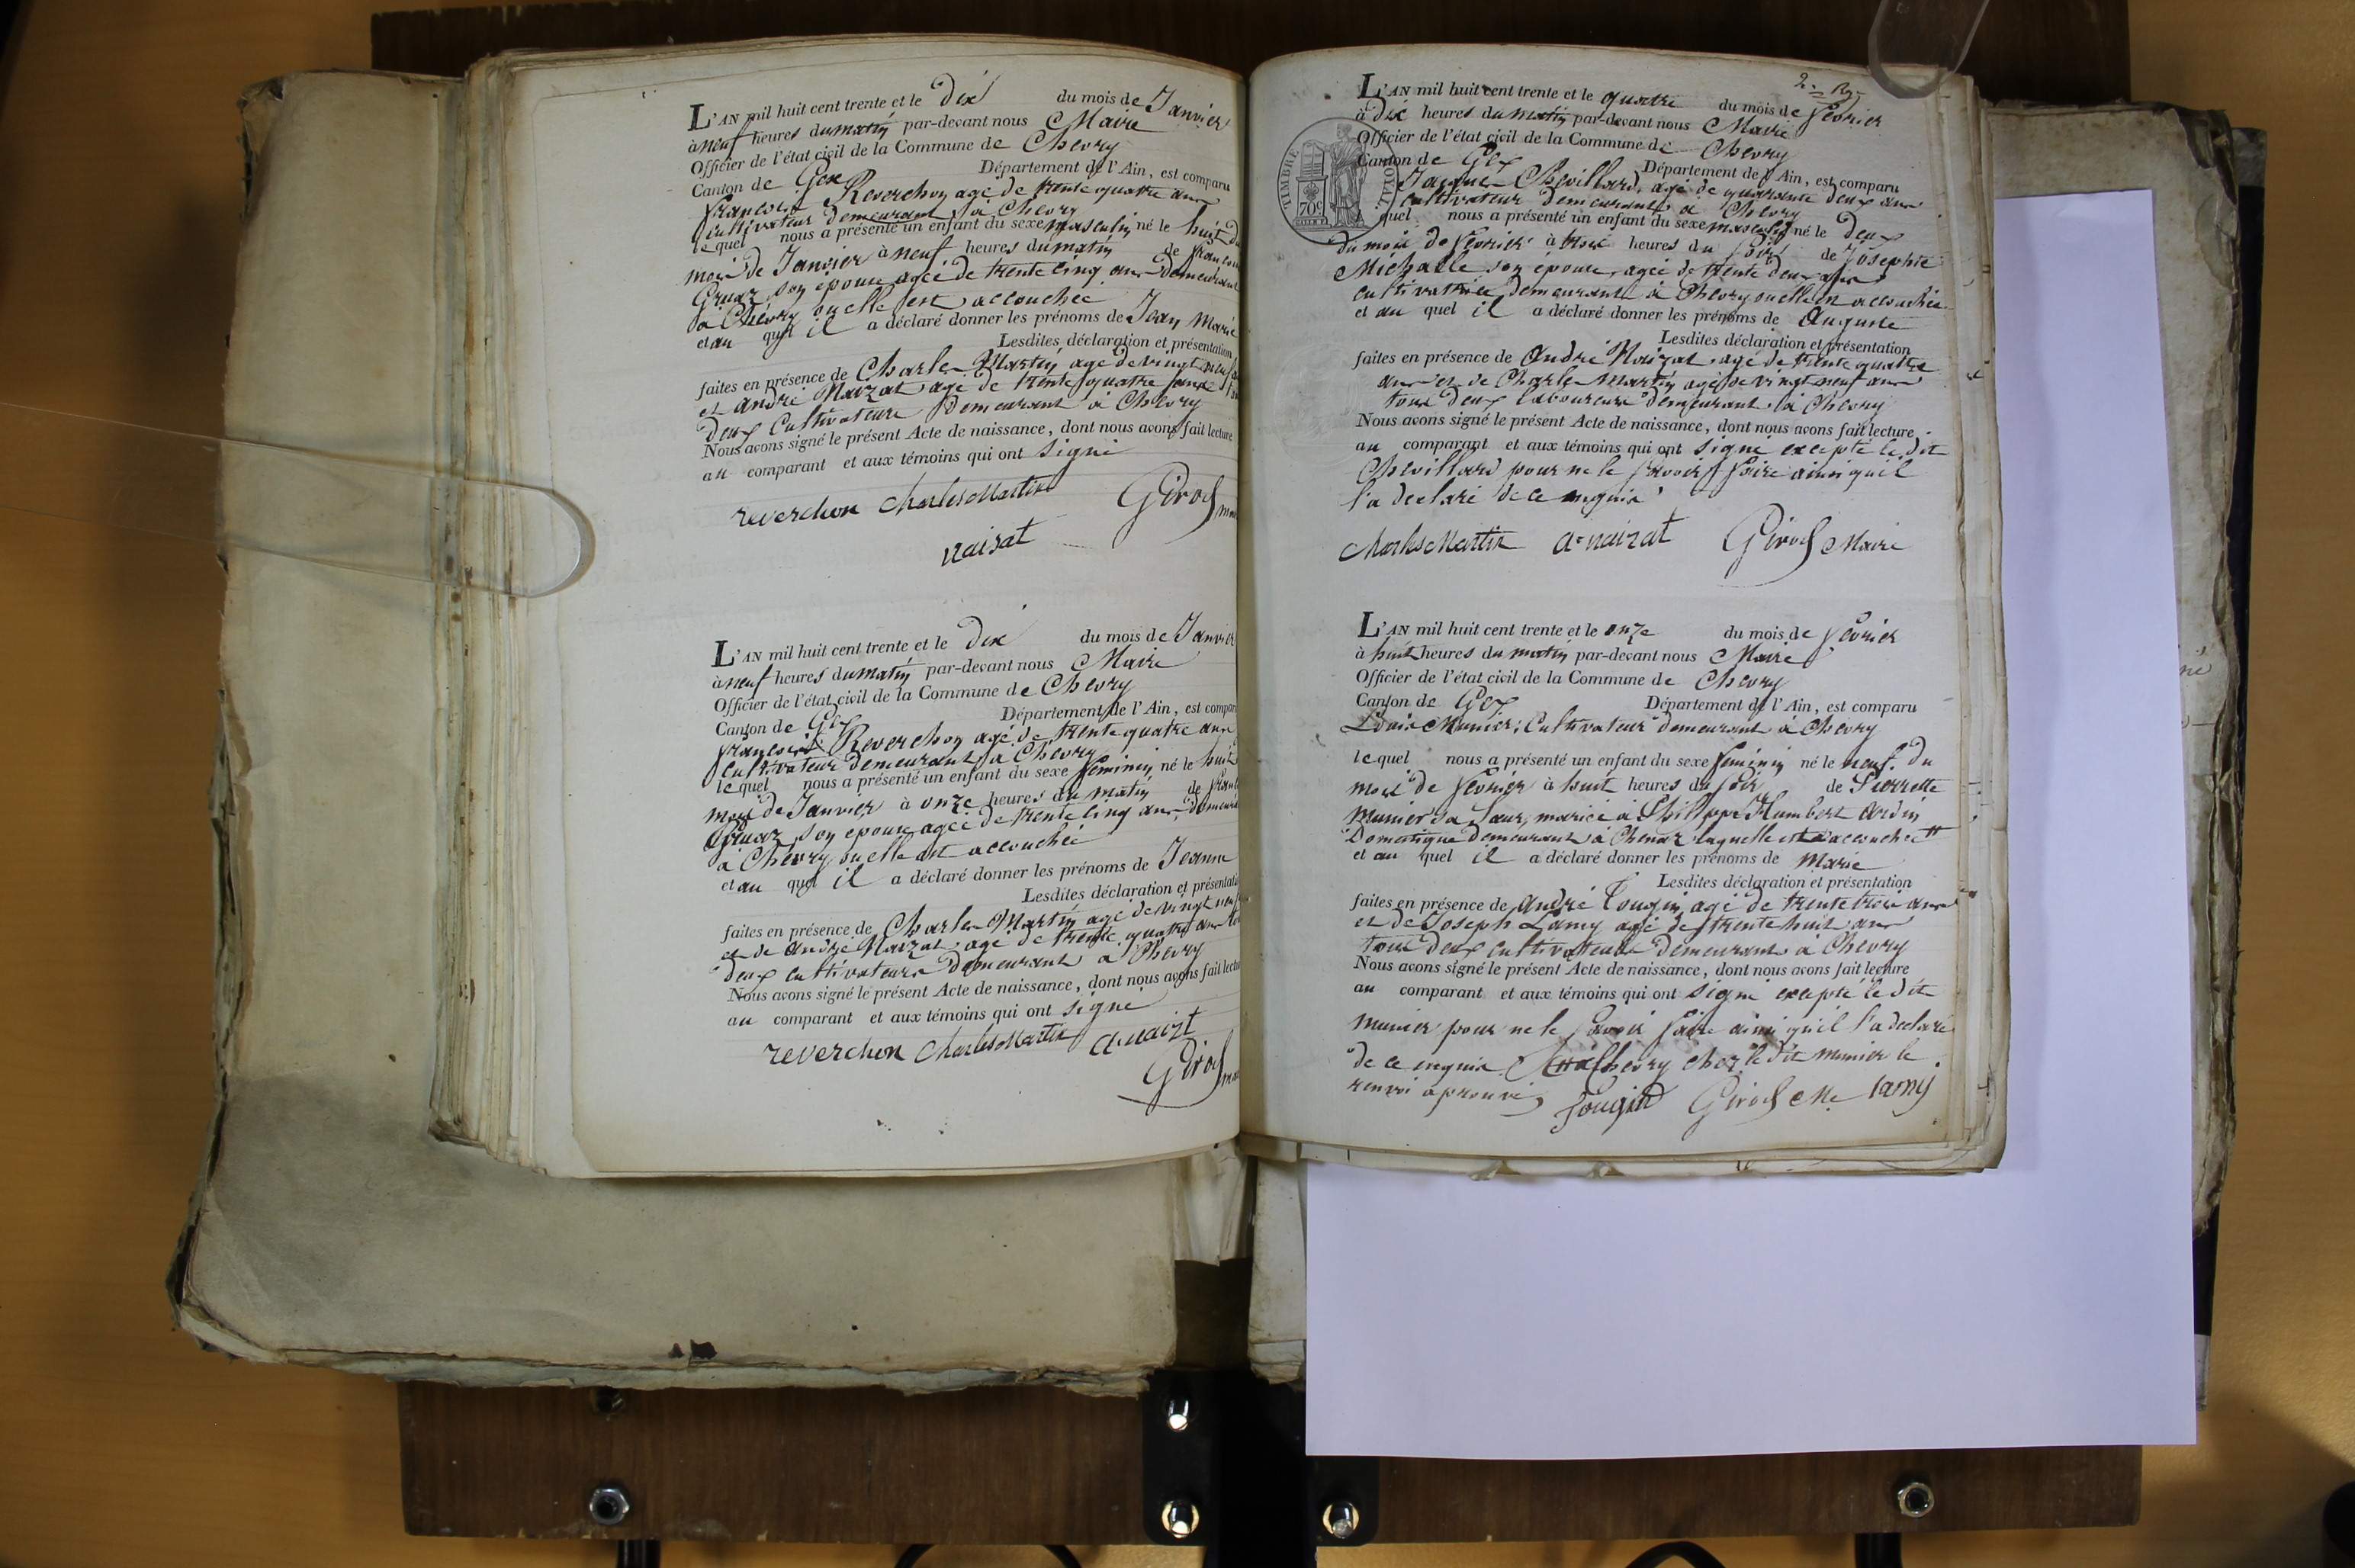 L'AN mil huit cent trente et le dix du mois de Janvier
à neuf heures du matin par-devant nous Maire
Officier de l'état civil de la Commune de Chevry
Canton de Gex Département de l'Ain, est comparu
françois Reverchon agé de trente quatre ans
cultivateur demeurant à Chevry
le quel nous a présenté un enfant du sexe masculin né le huit du
mois de Janvier à neuf heures du matin de
Gruaz son epouse agée de trente cinq ans demeurant
a Chevry ou elle est accouchée
et au quel il a déclaré donner les prénoms de Jean Marie
Lesdites déclaration et présentation
faites en présence de Charles Martin agé de vingt neuf
et andré Naizat agé de trente quatre
deux Cultivateurs Demeurant à Chevry
Nous avons signé le présent Acte de naissance, dont nous avons fait lecture
au comparant et aux témoins qui ont signé
reverchon Charles Martin Girod
naizat
L'AN mil huit cent trente et le dix du mois de Janvier
à neuf heures du matin par-devant nous Maire
Officier de l'état civil de la Commune de Chevry
Canton de Gex Département de l'Ain, est comparu
françois Reverchon agé de trente quatre ans
cultivateur demeurant à Chevry
le quel nous a présenté un enfant du sexe féminin né le huit
mois de Janvier à onze heures du matin de
Gruaz son epouse agée de trente cinq ans
à Chevry ou elle est accouchée
et au quel il a déclaré donner les prénoms de Jeanne
Lesdites déclaration et présentation
faites en présence de Charles Martin agé de vingt neuf
et de André Naizat agé de trente quatre ans
deux cultivateurs demeurant à Chevry
Nous avons signé le présent Acte de naissance, dont nous avons fait lecture
au comparant et aux témoins qui ont signé
reverchon Charles Martin a naizt
Girod
2.
L'AN mil huit cent trente et le quatre du mois de fevrier
à dix heures du matin par-devant nous Maire
Officier de l'état civil de la Commune de Chevry
Canton de Gex Département de l'Ain, est comparu
Jaques Chevillard, agé de quarante deux ans
cultivateur demeurant à Chevry
quel nous a présenté un enfant du sexe masculin né le deux
du mois de fevrier à trois heures du soir de Josephte
Michalle son épouse, agée de trente deux ans
cultivatrice demeurant à Chevry ou elle est accouchée
et au quel il a déclaré donner les prénoms de Auguste
Lesdites déclaration et présentation
faites en présence de André Naizat agé de trente quatre
ans et de Charles Martin agé de vingt neuf ans
tous deux laboureurs demeurant à Chevry
Nous avons signé le présent Acte de naissance, dont nous avons fait lecture
au comparant et aux témoins qui ont signé excepté le dit
Chevillard pour ne le savoir faire ainsi quil
l'a declaré de ce enquis
Charles Martin a naizat Girod Maire
TIMBRE ROYAL
70c
L'AN mil huit cent trente et le onze du mois de fevrier
à huit heures du matin par-devant nous Maire
Officier de l'état civil de la Commune de Chevry
Canton de Gex Département de l'Ain, est comparu
Louis Munier, Cultivateur demeurant à Chevry
le quel nous a présenté un enfant du sexe féminin né le neuf du
mois de fevrier à huit heures du soir de Pierrette
Munier sa sœur, mariée à Philippe Humbert
Domestique demeurant à laquelle est accouchée
et au quel il a déclaré donner les prénoms de Marie
Lesdites déclaration et présentation
faites en présence de André Tougin agé de trente trois ans
et de Joseph Lamy agé de trente huit ans
tous deux cultivateurs demeurant à Chevry
Nous avons signé le présent Acte de naissance, dont nous avons fait lecture
au comparant et aux témoins qui ont signé excepté le dit
munier pour ne le savoir faire ainsi quil l'a declaré
de ce enquis Chevry chez le dit munier le
renvoi aprouvé Tougin Girod Me lamy